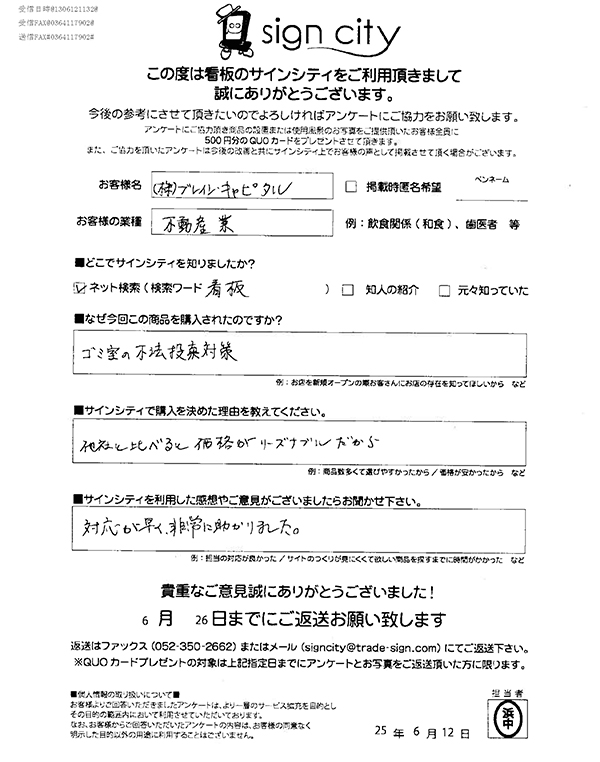 受信日時@1306121132@
受信FAX@0364117902@
送信FAX@0364117902@
sign city
この度は看板のサインシティをご利用頂きまして
誠にありがとうございます。
今後の参考にさせて頂きたいのでよろしければアンケートにご協力をお願い致します。
アンケートにご協力頂き商品の設置または使用風景のお写真をご提供頂いたお客様全員に
500円分のQUOカードをプレゼントさせて頂きます。
また、ご協力を頂いたアンケートは今後の改善と共にサインシティ上でお客様の声として掲載させて頂く場合がございます。
お客様名 (株)ブレイン・キャピタル □ 掲載時匿名希望 ペンネーム
お客様の業種 不動産業 例：飲食関係（和食）、歯医者 等
■どこでサインシティを知りましたか？
☑ネット検索（検索ワード 看板 ） □ 知人の紹介 □ 元々知っていた
■なぜ今回この商品を購入されたのですか？
ゴミ室の不法投棄対策
例：お店を新規オープンの際お客さんにお店の存在を知ってほしいから など
■サインシティで購入を決めた理由を教えてください。
他社と比べると価格がリーズナブルだから
例：商品数多くて選びやすかったから / 価格が安かったから など
■サインシティを利用した感想やご意見がございましたらお聞かせ下さい。
対応が早く、非常に助かりました。
例：担当の対応が良かった / サイトのつくりが見にくくて欲しい商品を探すまでに時間がかかった など
貴重なご意見誠にありがとうございました！
6 月 26 日までにご返送お願い致します
返送はファックス（052-350-2662）またはメール（signcity@trade-sign.com）にてご返送下さい。
※QUOカードプレゼントの対象は上記指定日までにアンケートとお写真をご返送頂いた方に限ります。
■個人情報の取り扱いについて■
お客様よりご回答いただきましたアンケートは、より一層のサービス拡充を目的とし
その目的の範囲内において利用させていただいております。
なお、お客様からご回答いただいたアンケートの内容は、お客様の同意なく
明示した目的以外の用途に利用することはございません。
担当者
浜中
25 年 6 月 12 日